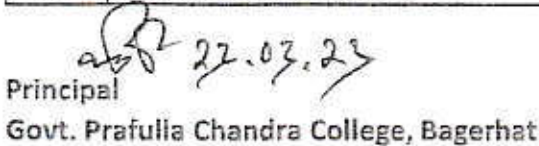 22.03.23
Principal
Govt. Prafulla Chandra College, Bagerhat